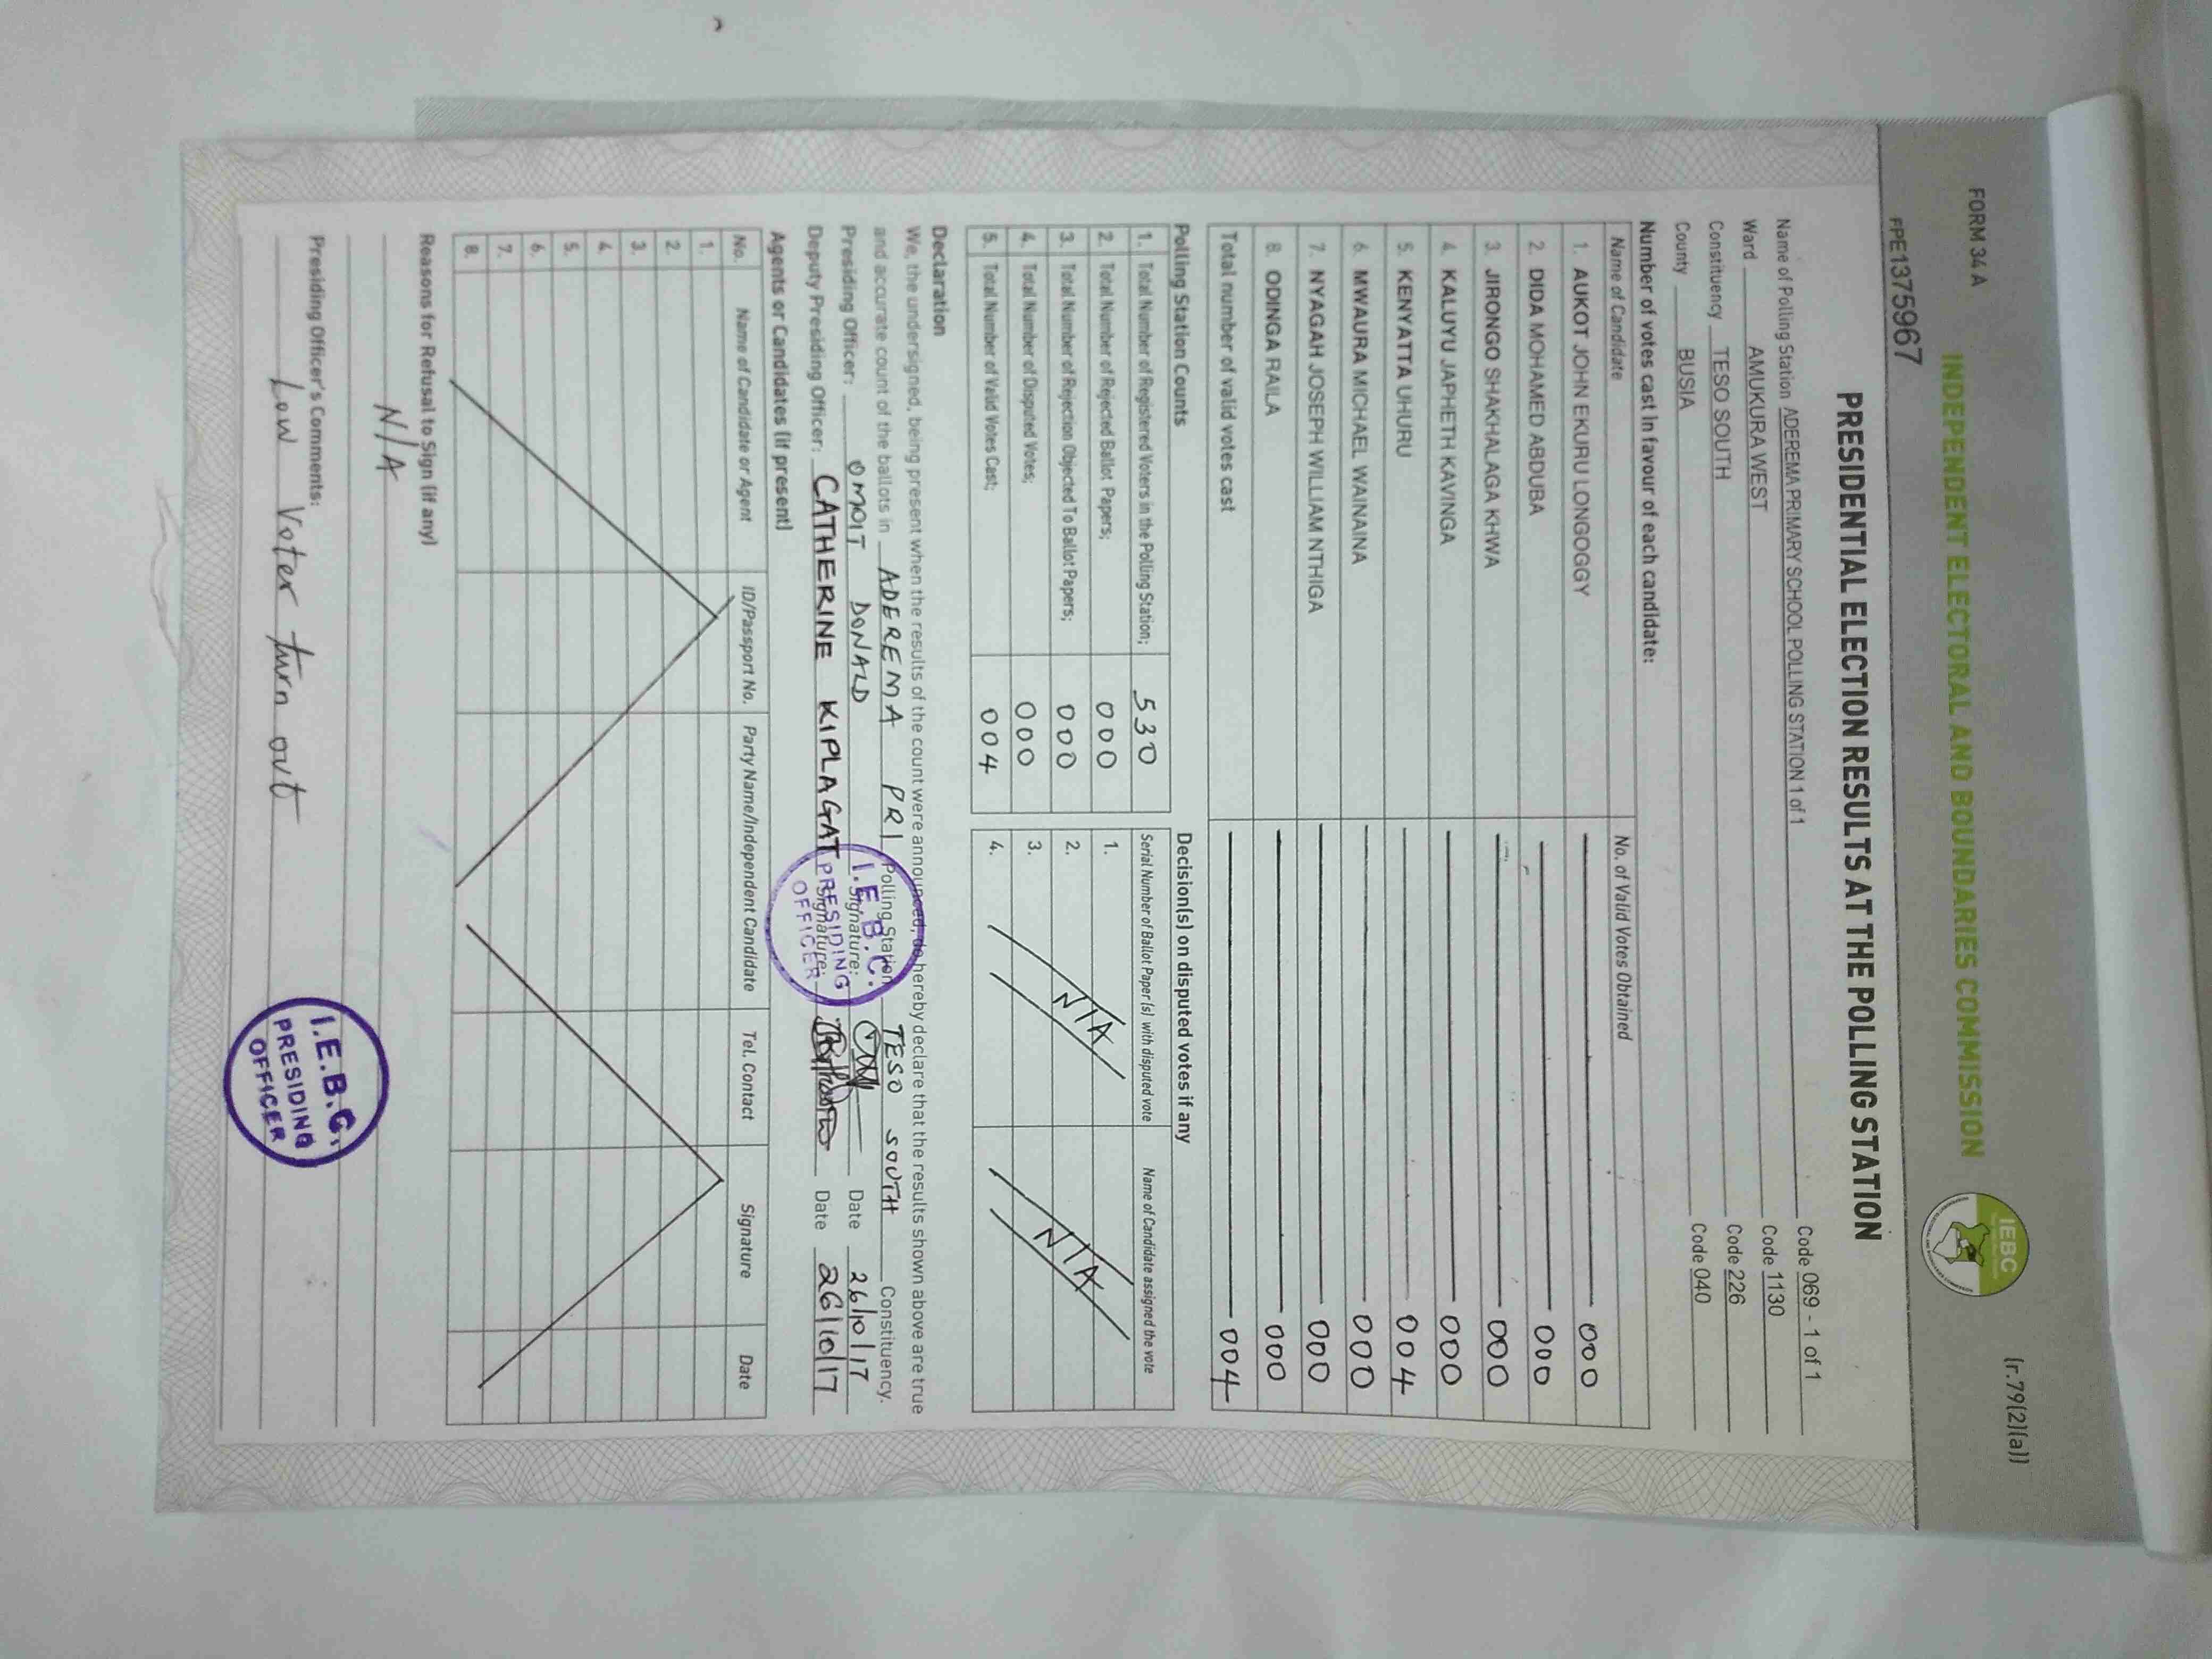 FORM 34 A
(r.79(2)(a))
INDEPENDENT ELECTORAL AND BOUNDARIES COMMISSION
IEBC
PE1375967
PRESIDENTIAL ELECTION RESULTS AT THE POLLING STATION
Name of Polling Station ADEREMA PRIMARY SCHOOL POLLING STATION 1 of 1 Code 069 - 1 of 1
Ward AMUKURA WEST Code 1130
Constituency TESO SOUTH Code 226
County BUSIA Code 040
Number of votes cast in favour of each candidate:
Name of Candidate No. of Valid Votes Obtained
1. AUKOT JOHN EKURU LONGOGGY 000
2. DIDA MOHAMED ABDUBA 000
3. JIRONGO SHAKHALAGA KHWA 000
4. KALUYU JAPHETH KAVINGA 000
5. KENYATTA UHURU 004
6. MWAURA MICHAEL WAINAINA 000
7. NYAGAH JOSEPH WILLIAM NTHIGA 000
8. ODINGA RAILA 000
Total number of valid votes cast 004
Polling Station Counts Decision(s) on disputed votes if any
1. Total Number of Registered Voters in the Polling Station; 530
2. Total Number of Rejected Ballot Papers; 000
3. Total Number of Rejection Objected To Ballot Papers; 000
4. Total Number of Disputed Votes; 000
5. Total Number of Valid Votes Cast; 004
Serial Number of Ballot Paper (s) with disputed vote Name of Candidate assigned the vote
1.
2.
3.
4.
N/A N/A
Declaration
We, the undersigned, being present when the results of the count were announced, do hereby declare that the results shown above are true
and accurate count of the ballots in ADEREMA PRI Polling Station TESO SOUTH Constituency.
Presiding Officer: OMOIT DONALD Signature: Date 26/10/17
Deputy Presiding Officer: CATHERINE KIPLAGAT Signature: Date 26/10/17
I.E.B.C.
PRESIDING
OFFICER
Agents or Candidates (if present)
No. Name of Candidate or Agent ID/Passport No. Party Name/Independent Candidate Tel. Contact Signature Date
1.
2.
3.
4.
5.
6.
7.
8.
Reasons for Refusal to Sign (if any)
N/A
Presiding Officer's Comments:
Low Voter turn out
I.E.B.C.
PRESIDING
OFFICER